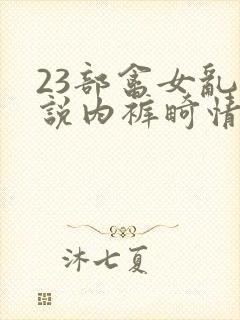 23部畜女乱
説内裤畸情
沐七夏